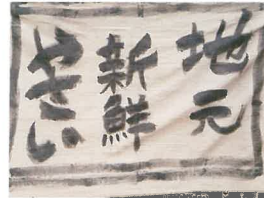 地元
新鮮
やさい